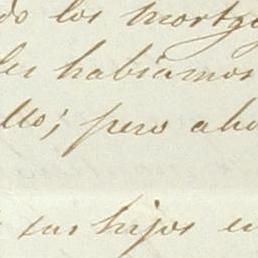 do los mortg
les habiamos
llo; pero aho
sus hijos en